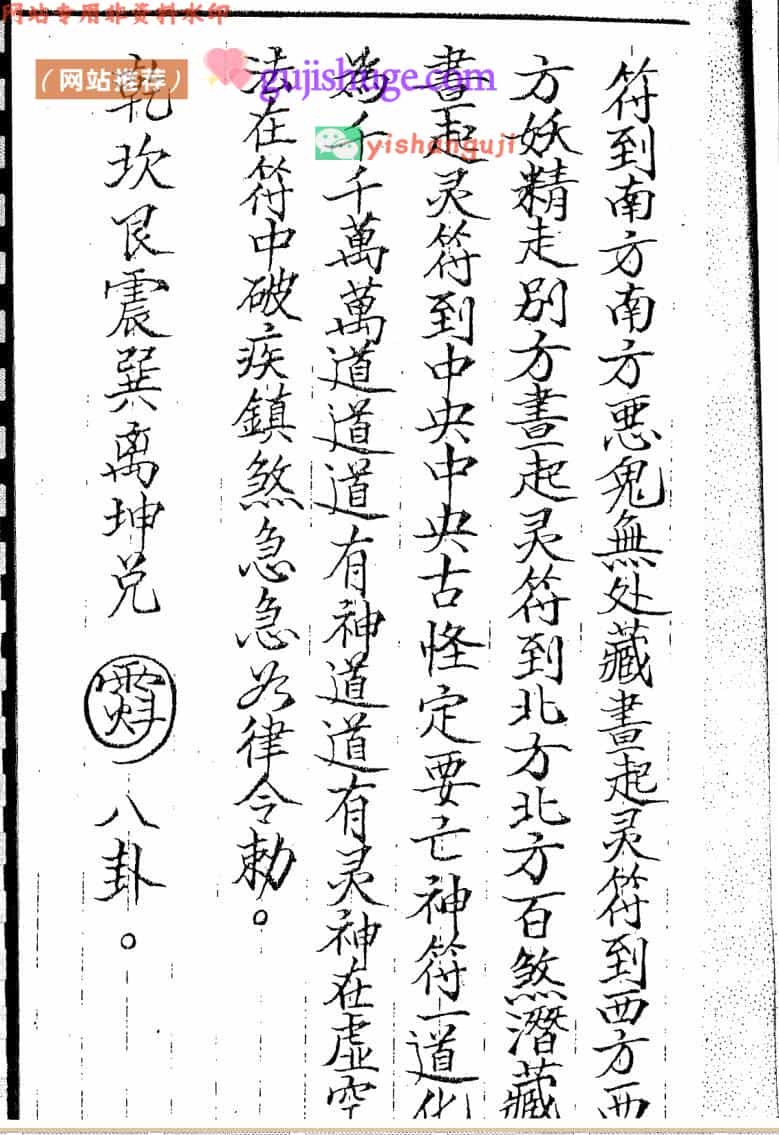 网站专用非资料水印
(网站推荐)
gujishuge.com
yishanguji
符到南方南方恶鬼無处藏書起灵符到西方西
方妖精走别方書起灵符到北方北方百煞潛藏
書起灵符到中央中央古怪定要亡神符一道化
為千千萬萬道道道有神道道有灵神在虛空
法在符中破疾鎮煞急急如律令勅。
乾坎艮震巽离坤兑 八卦。